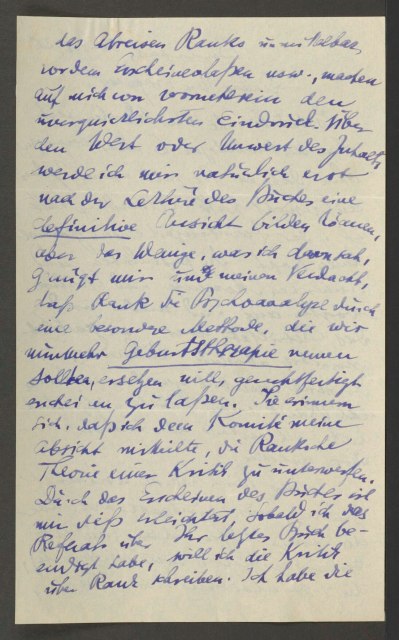 das Abreisen Ranks unmittelbar
vor dem Erscheinenlaßen usw., machen
auf mich von vorneherein den
unerquicklichsten Eindruck. Über
den Wert oder Unwert des Inhalts
werde ich mir natürlich erst
nach der Lektüre des Buches eine
definitive Ansicht bilden können,
aber das Wenige, was ich daraus sah,
genügt mir und meinen Verdacht,
daß Rank die Psychoanalyse durch
eine besondere Methode, die wir
nunmehr Geburtstherapie nennen
sollten, ersetzen will, gerechtfertigt
erscheinen zu laßen. Sie erinnern
sich, daß ich dem Komité meine
Absicht mitteilte, die Ranksche
Theorie einer Kritik zu unterwerfen.
Durch das Erscheinen des Buches ist
mir dieß erleichtert, sobald ich das
Referat über Ihr letztes Buch be-
endigt habe, will ich die Kritik
über Rank schreiben. Ich habe die